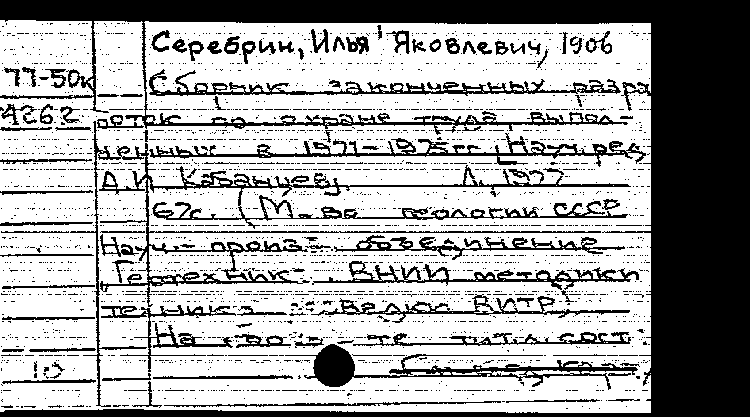 Серебрин, Илья Яковлевич, 1906
77-50к Сборник законченных разра
4262 боток по охране труда, выпол-
ненных в 1971-1975гг [Науч. ред.
А.И. Кабанцев]. Л., 1977
67с. (М-во геологии СССР
Науч.- произ. объединение
"Геотехника". ВНИИ методики
техники разведки ВИТР)
На титл. сост.